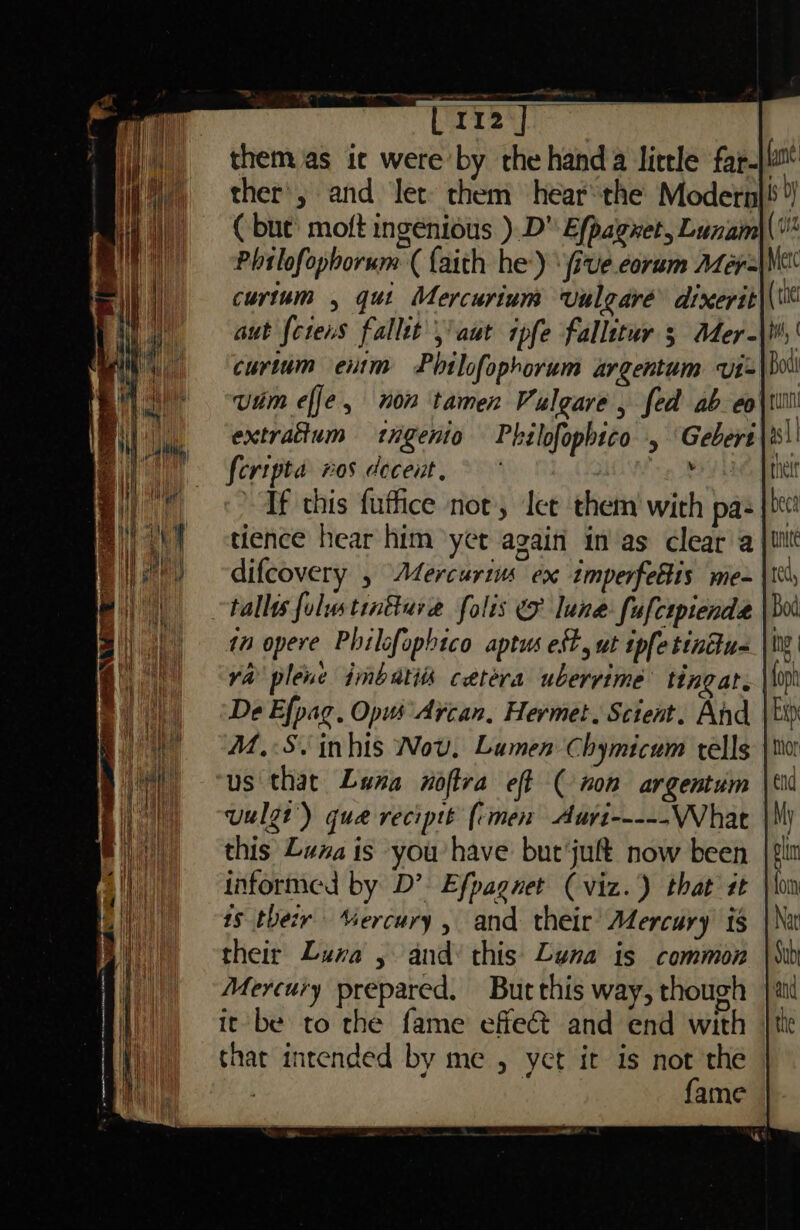 [ 112 ]
them as it were by the hand a little far-
ther, and let them hear the Modern
( but moſt ingenious ) D' Eſpagnet, Lunam
Philoſophorum ( ſaith he ) ſive eorum Mer-
curium , qui Mercurium vulgare dixerit
aut ſciens fallit , aut ipſe fallitur ; Mer-
curium enim Philoſophorum argentum vi-
vum eſſe, non tamen Vulgare , ſed ab eo
extractum ingenio Philoſophico , Geberi
ſcripta nos docent.
If this ſuffice not, let them with pa-
tience hear him yet again in as clear a
diſcovery , Mercurius ex imperfectis me-
tallis ſolus tinƈturæ ſolis & lunæ ſuſcipiendæ
in opere Philoſophico aptus eſt, ut ipſe tinƈtu-
râ plene imbutus cætera uberrime tingat.
De Eſpag. Opus Arcan. Hermet. Scient. And
M. S. in his Nov. Lumen Chymicum tells
us that Luna noſtra eſt ( non argentum
vulgi ) quæ recipit ſemen Auri-----What
this Luna is you have but juſt now been
informed by D' Eſpagnet (viz.) that it
is their Mercury , and their Mercury is
their Luna , and this Luna is common
Mercury prepared. But this way, though
it be to the ſame effect and end with
that intended by me , yet it is not the
ſame